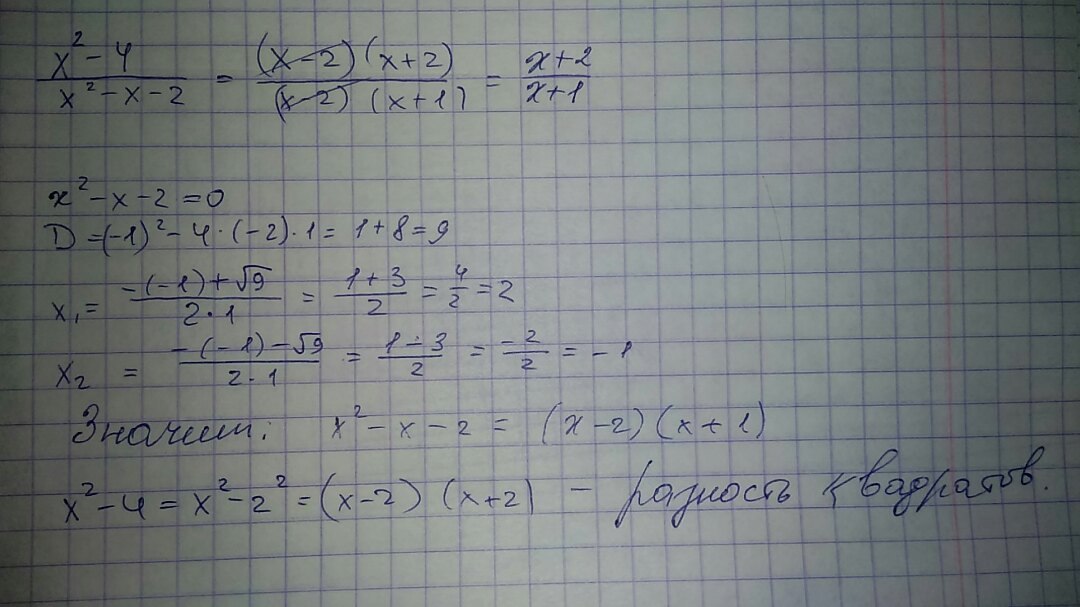 x² - 4 / x² - x - 2 = (x-2)(x+2) / (x-2)(x+1) = x+2 / x+1
x² - x - 2 = 0
D = (-1)² - 4·(-2)·1 = 1 + 8 = 9
x₁ = -(-1)+√9 / 2·1 = 1+3 / 2 = 4/2 = 2
x₂ = -(-1)-√9 / 2·1 = 1-3 / 2 = -2/2 = -1
Значит: x² - x - 2 = (x-2)(x+1)
x² - 4 = x² - 2² = (x-2)(x+2) - разность квадратов.